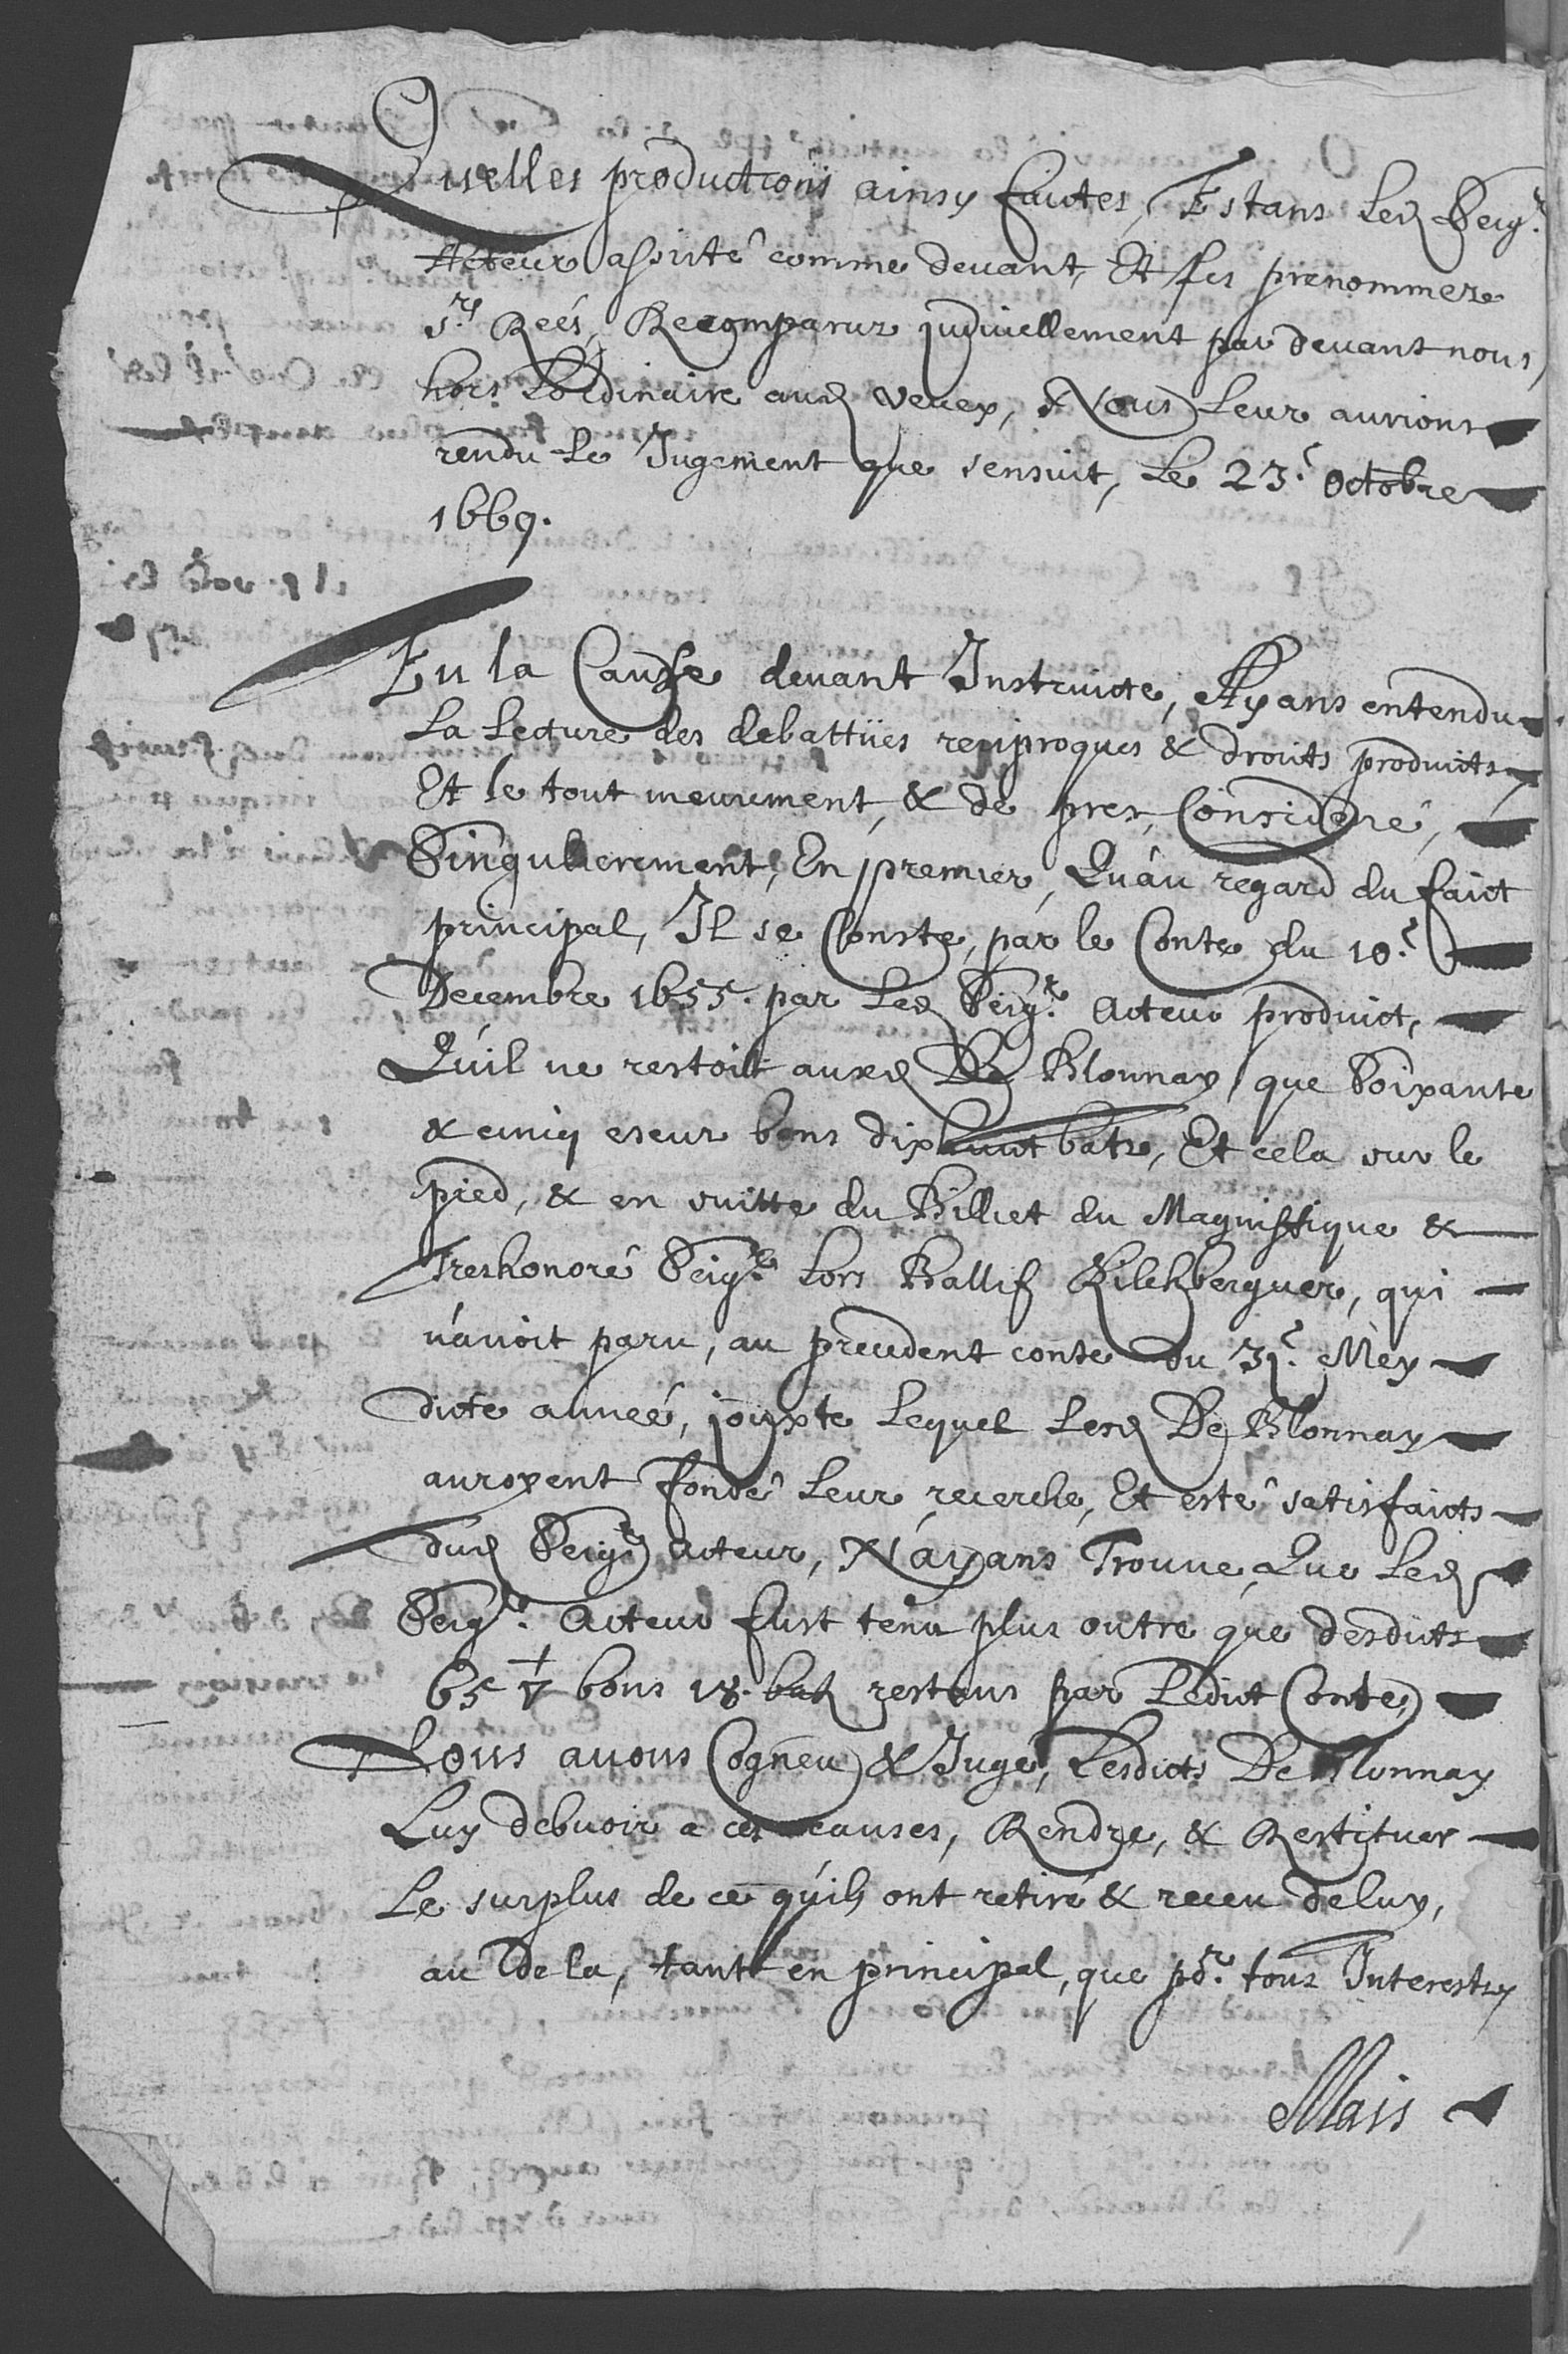 Quelles productions ainsy faictes, Estans Led Seigr.
Acteur assisté comme devant, Et les prenommez
srs Reés, Recomparuz judiciellement par devant nous,
hors Lordinaire aud vevey, Nous Leur aurions
rendu le Jugement que sensuit, Le 23e. Octobre
1669.
En la Causse devant Instruicte, Ayans entendu
La Lecture des debattües reciproques & droicts produicts
Et le tout meurement, & de pres, Consideré,
Singulierement, En premier, Qu'au regard du faict
principal, Il se Conste, par le Conte du 10e.
Decembre 1655. par Led Seigr. Acteur produict,
Qu'il ne restoit auxd De Blonnay, que Soixante
& cinq escuz bons dixhuict batz, Et cela sur le
pied, & en suitte du Billiet du Magniffique &
Treshonoré Seigr. Lors Ballif Kilchberguer, qui
n'avoit paru, au precedent conte du 3e. Mey
dicte anneé, jouxte Lequel Lesd De Blonnay
auroyent fondé Leur recerche, Et esté satisfaicts
dud Seigr Acteur, N'ayans Trouve, Que Led
Seigr. Acteur fust tenu plus outre que desdicts
65 ▽ bons 18. batz restans par Ledict Conte,
Nous avons Cogneu & Jugé, Lesdicts De Blonnay
Luy debvoir a ces causes, Rendre, & Restituer
Le surplus de ce qu'ils ont retiré & receu de luy,
au de la, tant en principal, que pr. tous Interestz
Mais